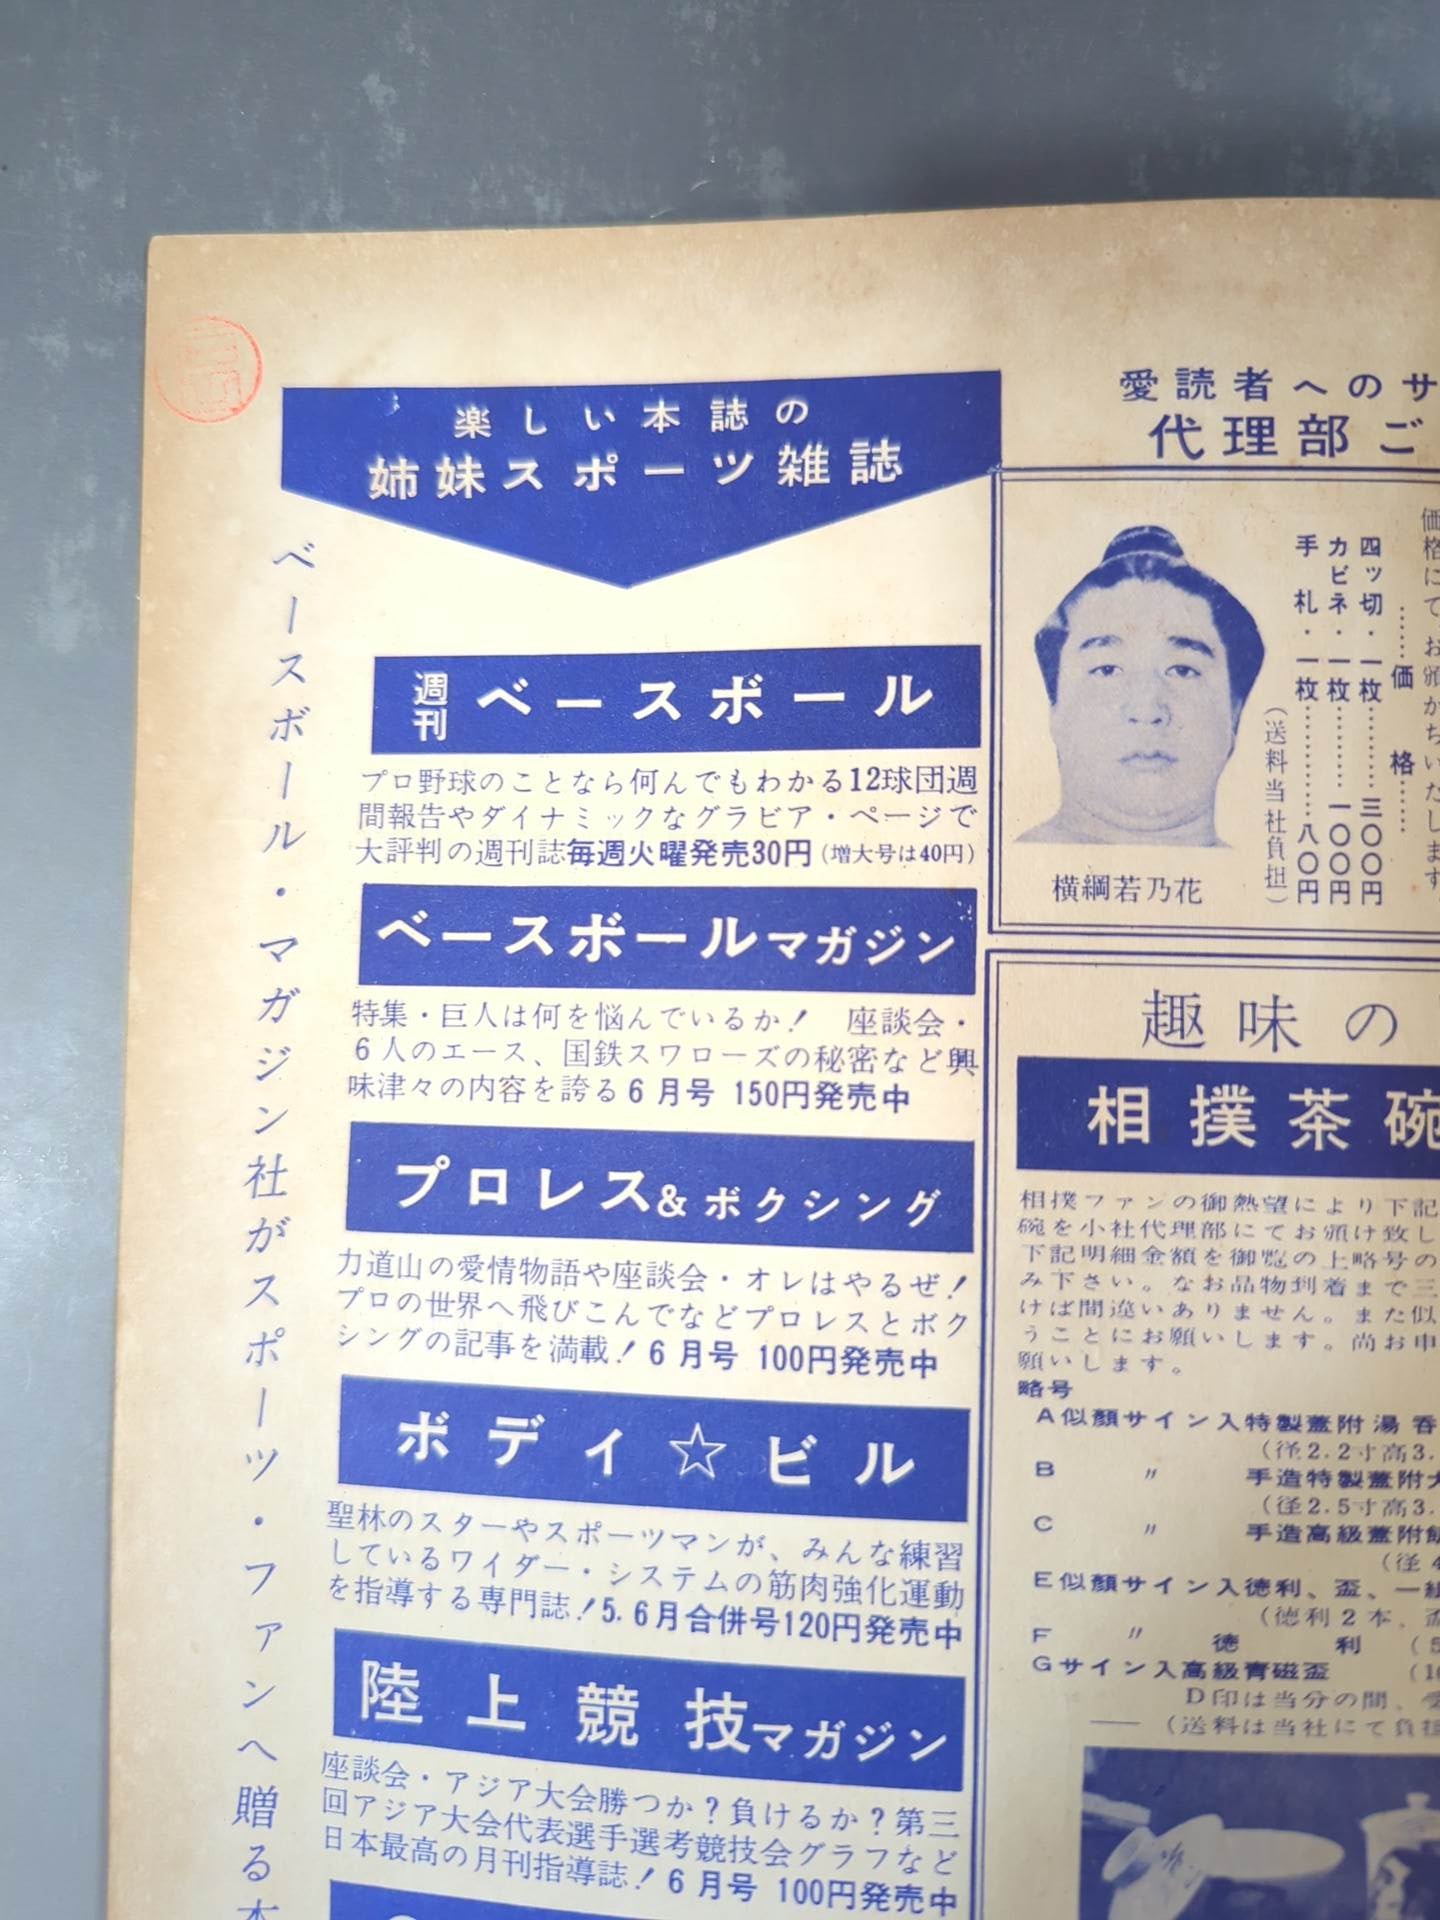 楽しい本誌の
姉妹スポーツ雑誌
ベースボール・マガジン社がスポーツ・ファンへ贈る本
週刊 ベースボール
プロ野球のことなら何んでもわかる12球団週
間報告やダイナミックなグラビア・ページで
大評判の週刊誌毎週火曜発売30円(増大号は40円)
ベースボールマガジン
特集・巨人は何を悩んでいるか! 座談会・
6人のエース、国鉄スワローズの秘密など興
味津々の内容を誇る6月号 150円発売中
プロレス&ボクシング
力道山の愛情物語や座談会・オレはやるぜ!
プロの世界へ飛びこんでなどプロレスとボク
シングの記事を満載!6月号 100円発売中
ボディ☆ビル
聖林のスターやスポーツマンが、みんな練習
しているワイダー・システムの筋肉強化運動
を指導する専門誌!5.6月合併号120円発売中
陸上競技マガジン
座談会・アジア大会勝つか?負けるか?第三
回アジア大会代表選手選考競技会グラフなど
日本最高の月刊指導誌!6月号 100円発売中
愛読者へのサ
代理部ご
価格にて、お頒かちいたします。
……価格……
四ッ切・一枚………三〇〇円
カビネ・一枚………一〇〇円
手札・一枚…………八〇円
(送料当社負担)
横綱若乃花
趣味の
相撲茶碗
相撲ファンの御熱望により下記
碗を小社代理部にてお頒け致し
下記明細金額を御覧の上略号の
み下さい。なお品物到着まで三
けば間違いありません。また似
うことにお願いします。尚お申
願いします。
略号
A似顔サイン入特製蓋附湯呑
(径2.2寸高3.
B 〃 手造特製蓋附大
(径2.5寸高3.
C 〃 手造高級蓋附飯
(径4
E似顔サイン入徳利、盃、一組
(徳利2本、盃
F 〃 徳利 (5
Gサイン入高級青磁盃 (10
D印は当分の間、受
―― (送料は当社にて負担